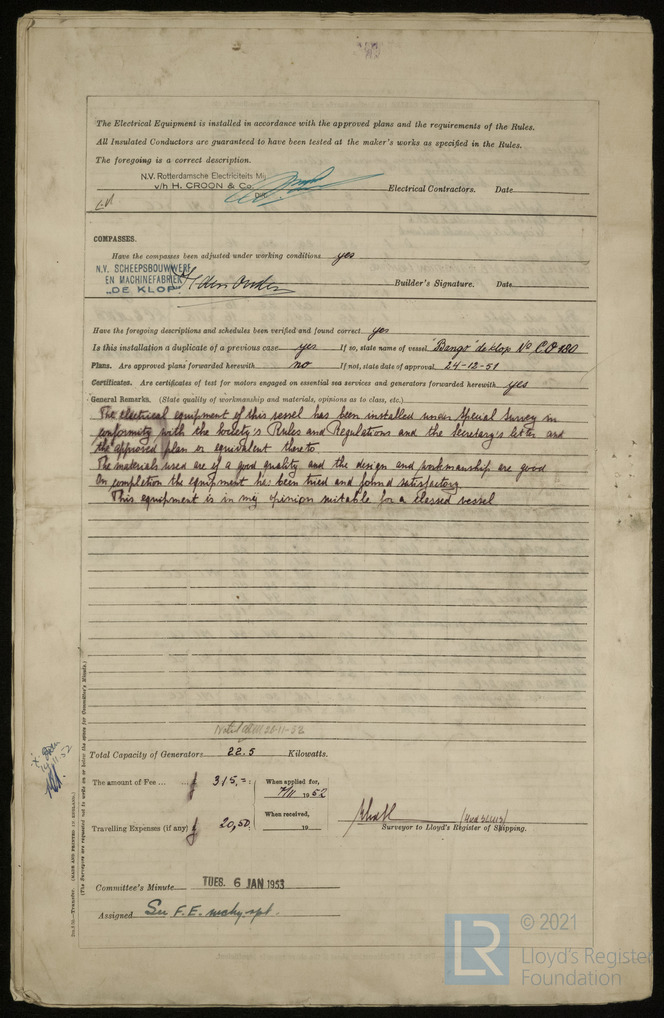 The Electrical Equipment is installed in accordance with the approved plans and the requirements of the Rules.
All Insulated Conductors are guaranteed to have been tested at the maker's works as specified in the Rules.
The foregoing is a correct description.
N.V. Rotterdamsche Electriciteits Mij
v/h H. CROON & Co.
Electrical Contractors. Date
COMPASSES.
Have the compasses been adjusted under working conditions yes
N.V. SCHEEPSBOUWWERF
EN MACHINEFABRIEK
"DE KLOP"
Builder's Signature. Date
Have the foregoing descriptions and schedules been verified and found correct yes
Is this installation a duplicate of a previous case yes If so, state name of vessel "Bango" de Klop No C.O 180
Plans. Are approved plans forwarded herewith no If not, state date of approval 24-12-51
Certificates. Are certificates of test for motors engaged on essential sea services and generators forwarded herewith yes
General Remarks. (State quality of workmanship and materials, opinions as to class, etc.)
The electrical equipment of this vessel has been installed under Special Survey in
conformity with the Society's Rules and Regulations and the Secretary's letter and
the approved plan or equivalent thereto
The materials used are of a good quality and the design and workmanship are good
On completion the equipment has been tried and found satisfactory.
This equipment is in my opinion suitable for a classed vessel
Noted 28-11-52
Total Capacity of Generators 22.5 Kilowatts.
The amount of Fee ... ƒ 315,= :
When applied for,
7/11 1952
Travelling Expenses (if any) ƒ 20,50
When received,
19
Surveyor to Lloyd's Register of Shipping.
Committee's Minute TUES. 6 JAN 1953
Assigned See F.E. mchy rpt.
(MADE AND PRINTED IN ENGLAND.)
(The Surveyors are requested not to write on or below the space for Committee's Minute.)
LR © 2021
Lloyd's Register
Foundation